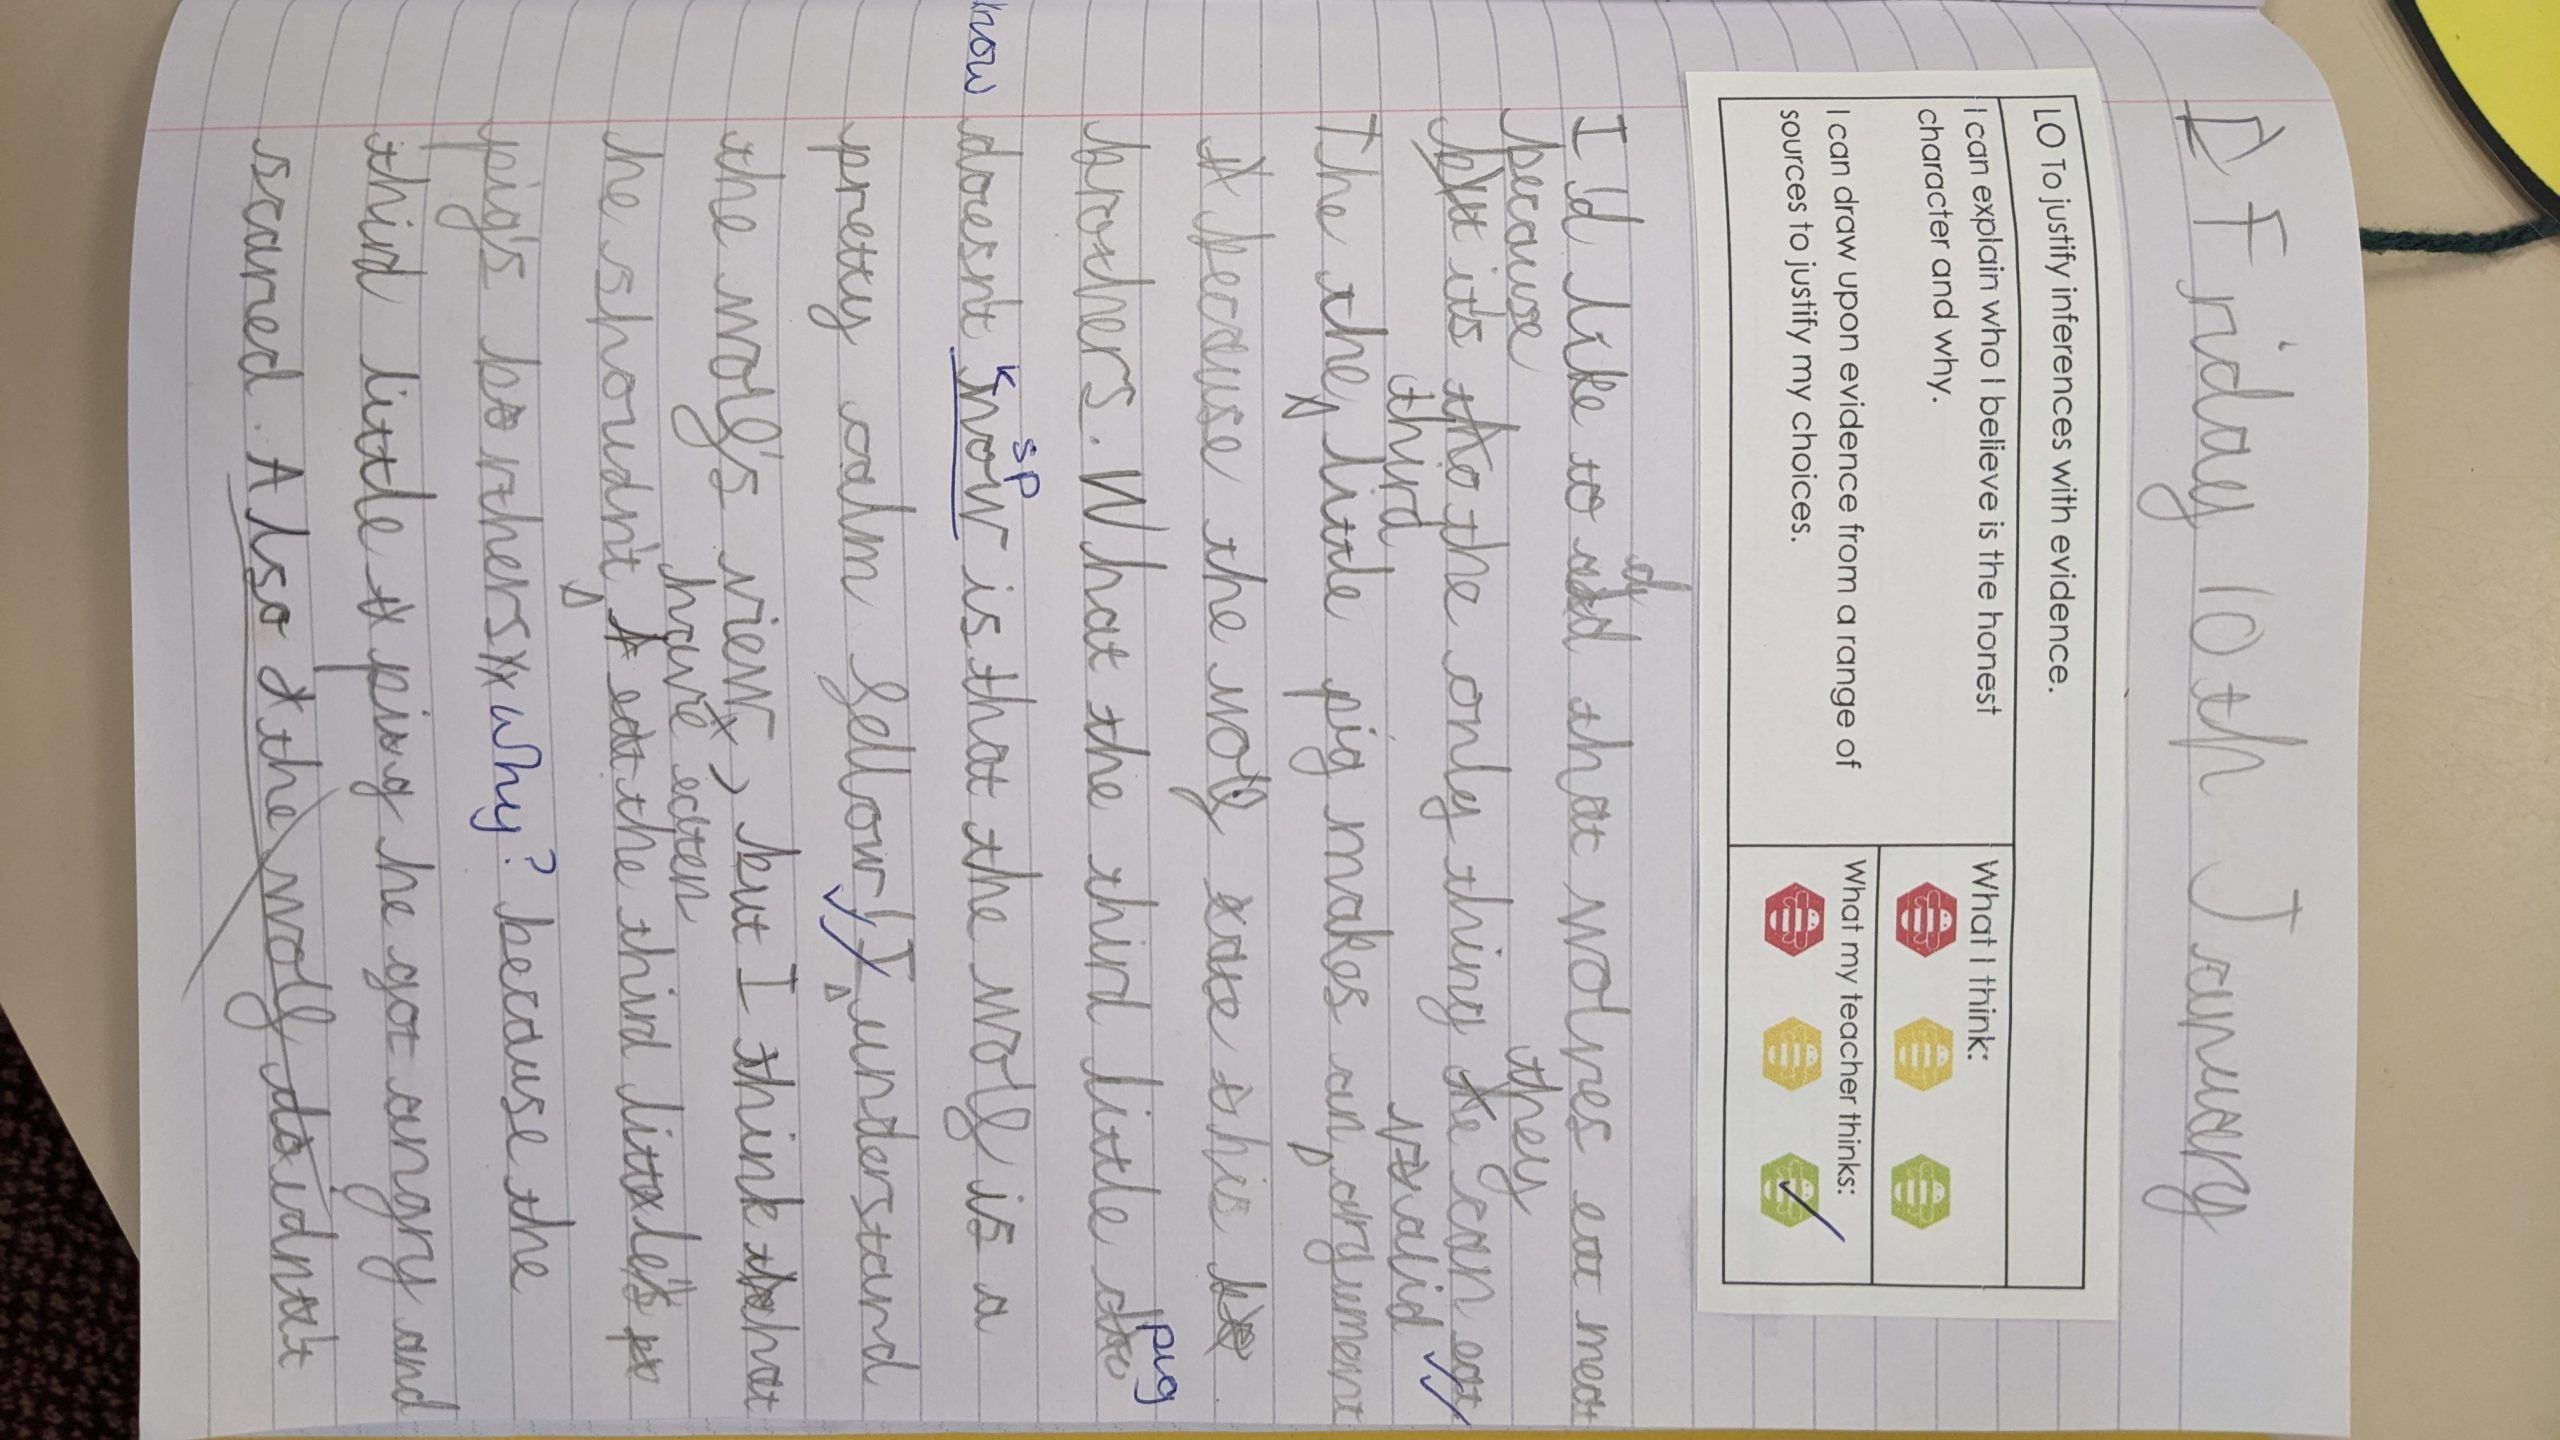 Friday 10th January
LO To justify inferences with evidence.
I can explain who I believe is the honest
character and why.
I can draw upon evidence from a range of
sources to justify my choices.
What I think:
What my teacher thinks:
I'd like to add that wolves eat meat
because it's the only thing they can eat
The the third little pig makes an valid argument
because the wolf ate his
brothers. What the third little pig
know doesnt know is that the wolf is a
sp
pretty calm fellow! I understand
the wolf's view, but I think that
he shoudnt have eaten the third little
pig's borthers why? because the
third little ping he got angry and
scared. Also the wolf